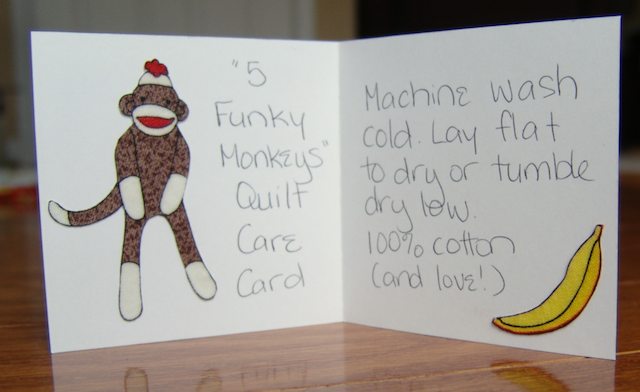 "5
Funky
Monkeys"
Quilt
Care
Card
Machine wash
cold. Lay flat
to dry or tumble
dry low.
100% cotton
(and love!)